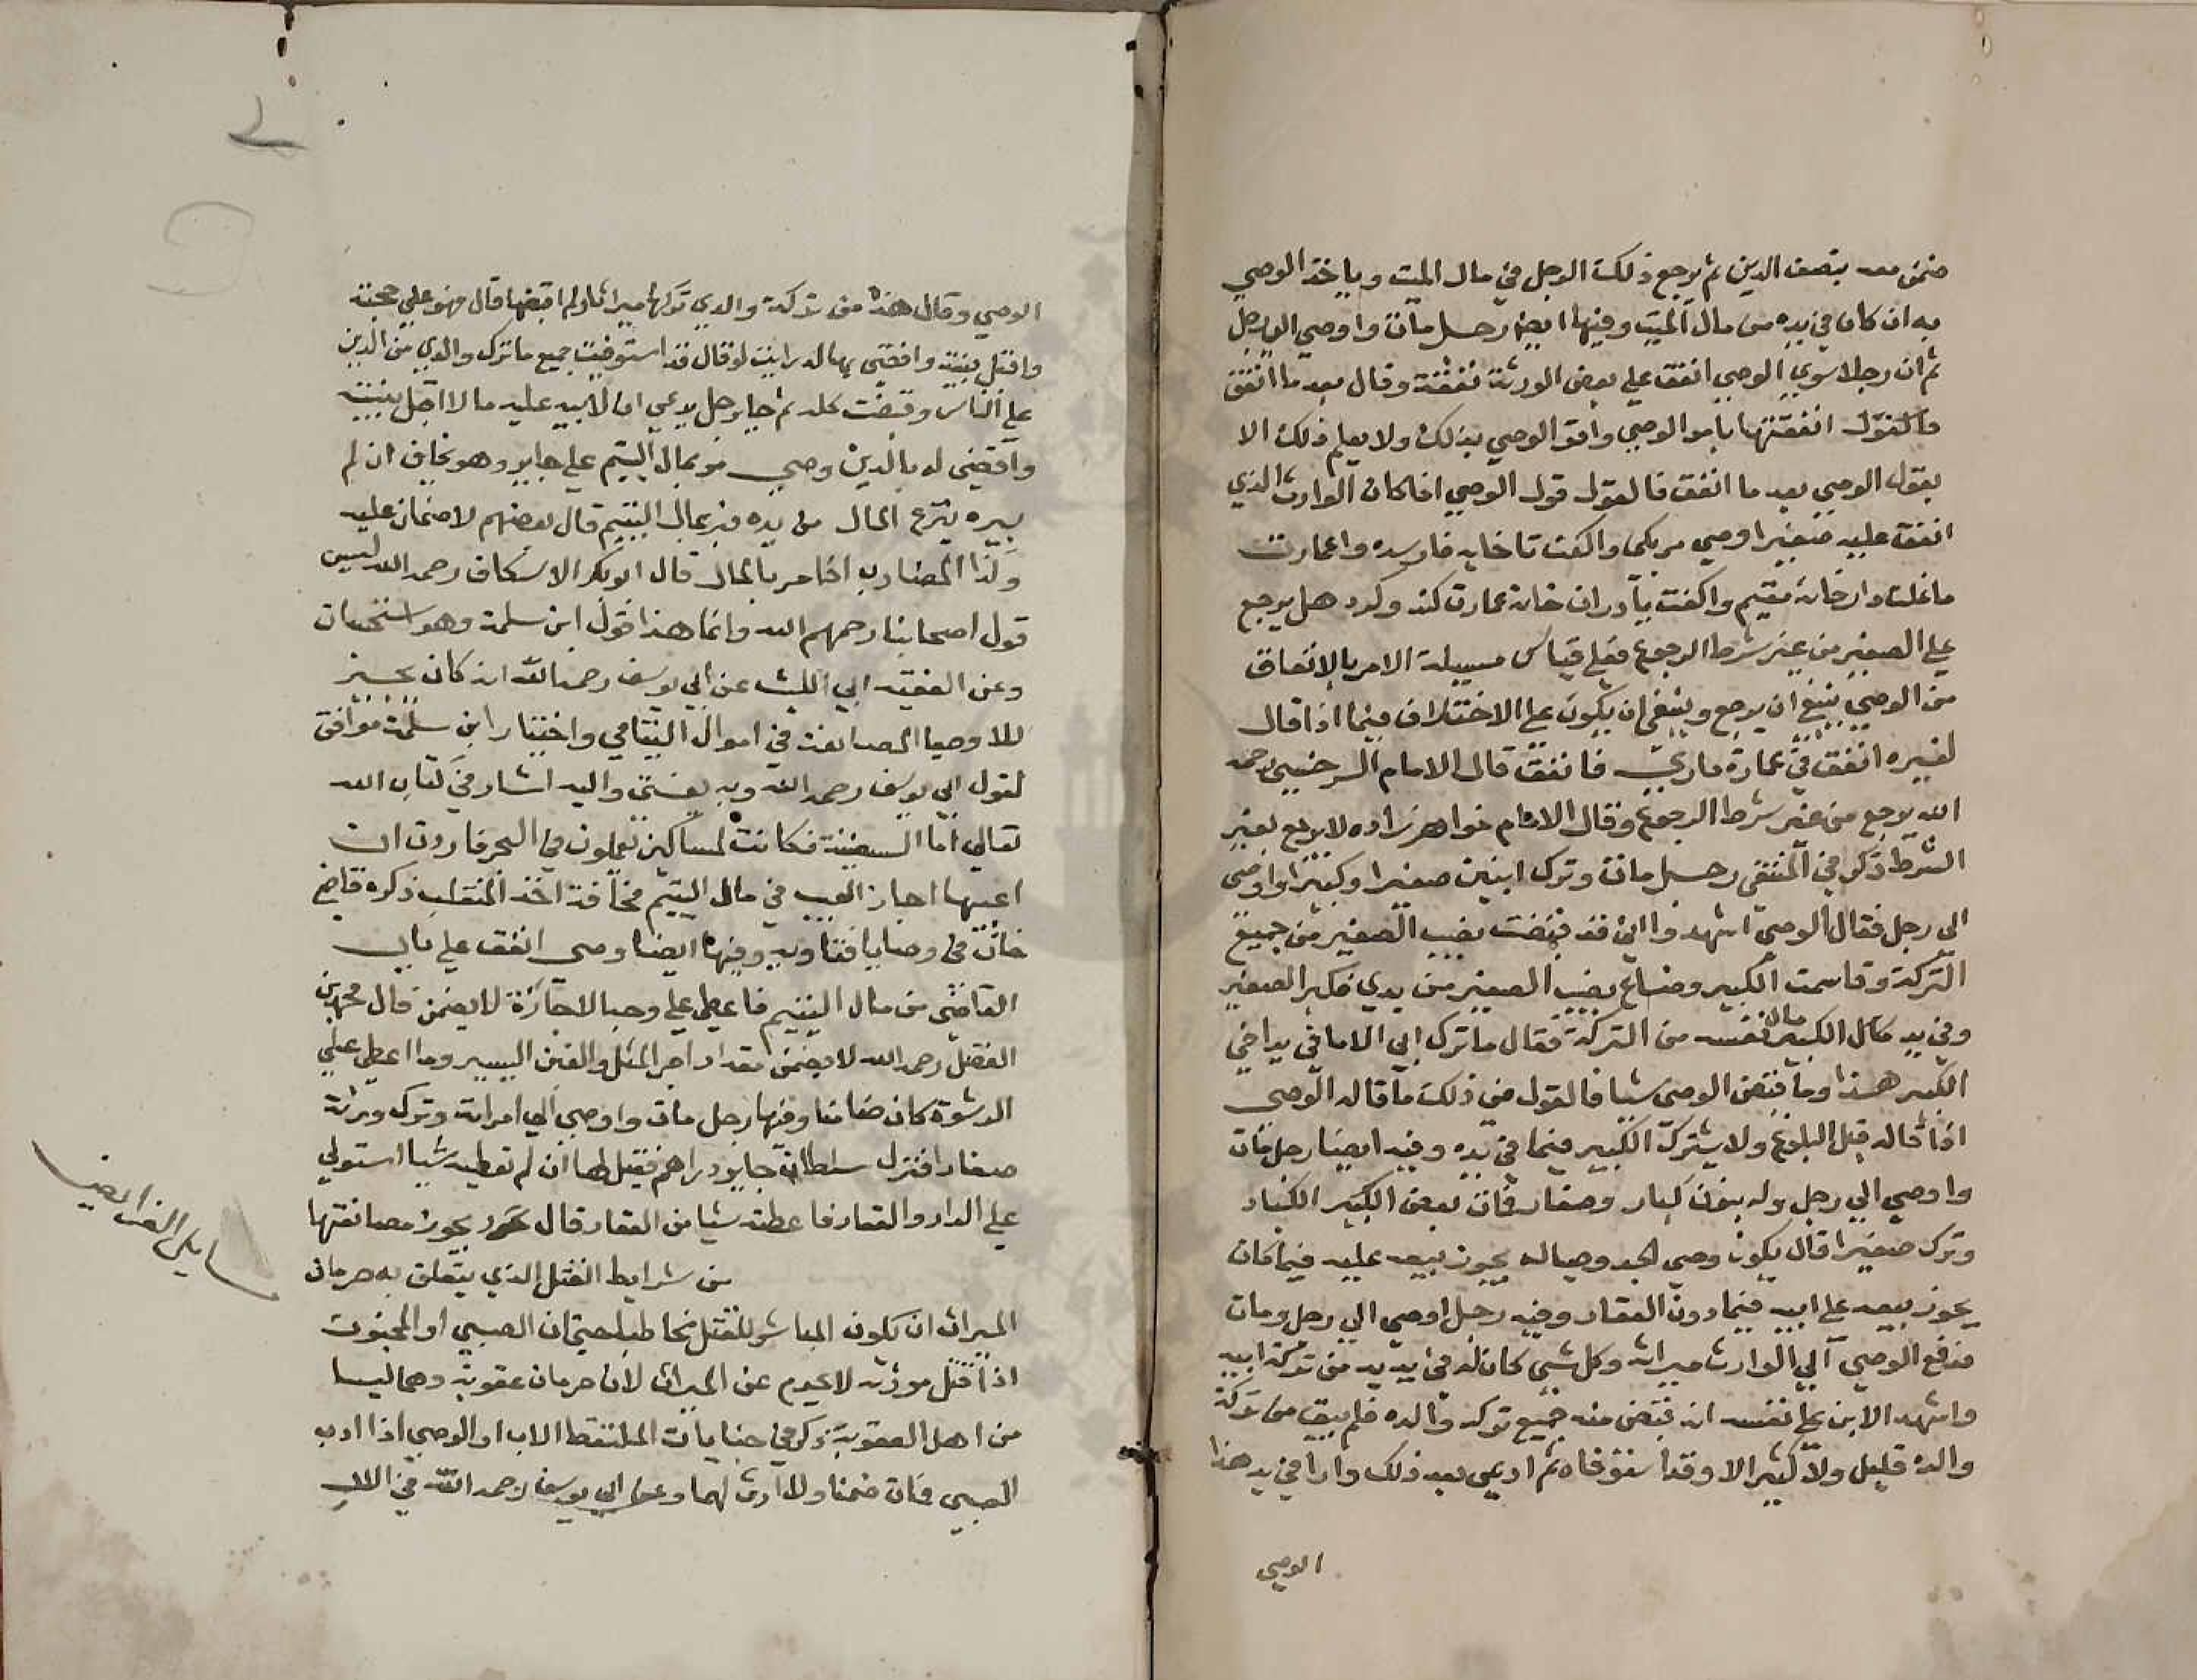 ضمن معه بنصف الدين ثم يرجع ذلك الرجل في مال الميت وياخذ الوصي
به ان كان في يده من مال الميت وفيها ايضا رجل مات واوصي الي رجل
ثم ان رجلا سوي الوصي انفق علي بعض الورثة نفقة وقال بعد ما انفق
والقول انفقتها بامر الوصي واقر الوصي بذلك ولا يعلم ذلك الا
بقول الوصي بعد ما انفق فالقول قول الوصي اذا كان الوارث الذي
انفق عليه صغيرا وصي مر يكي واكفت تا خانه
خانه يتيم واكفت خانه عمارت كند وكرد هل يرجع
علي الصغير من غير شرط الرجوع فعلي قياس مسيلة الامر بالانفاق
من الوصي ينبغ ان يرجع وينبغي ان يكون علي الاختلاف فيما اذا قال
لغيره انفق في عمارة داري فانفق قال الامام السرخسي رحمه
الله يرجع من غير شرط الرجوع وقال الامام خواهر زاده لا يرجع بغير
الشرط ذكر في المنتقي رجل مات وترك ابنين صغيرا وكبيرا واوصي
الي رجل فقال الوصي اشهدوا اني قد قبضت نصيب الصغير من جميع
التركة وقاسمت الكبير وضاع نصيب الصغير من يدي فكبر الصغير
وفي يد الكبير مال نفسه من التركة فقال ما ترك ابي الا ما في يد اخي
الكبير هذا وما قبض الوصي شيا فالقول من ذلك ما قاله الوصي
اذا قاله قبل البلوغ ولا يشترك الكبير فيما في يده وفيه ايضا رجل مات
واوصي الي رجل وله بنون كبار وصغار فمات بعض الكبير الكبار
وترك صغيرا قال يكون وصي الجد وصيا له يجوز بيعه عليه فيما كان
يجوز بيعه علي ابيه فيما دون العقار وفيه رجل اوصي الي رجل ومات
فدفع الوصي الي الوارث ميراثه وكل شي كان له في يديه من تركة ابيه
واشهد الابن علي نفسه انه قبض منه جميع تركه والده فلم يبق من تركة
والده قليل ولا كثير الا وقد استوفاه ثم ادعي بعد ذلك دارا في يد هذا
الوصي
الوصي وقال هذه من تركة والدي تركها ميراثا ولم اقبضها قال فهو علي حجته
واقبل بينته واقضي بها له ارايت لو قال قد استوفيت جميع ما ترك والدي من الدين
علي الناس وقبضت كله ثم جا رجل يدعي ان لابيه عليه مالا اقبل بينته
واقضي له بالدين وصي مر بمال اليتيم علي جاير وهو يخاف ان لم
يبره ينزع المال من يده فبر بمال اليتيم قال بعضهم لا ضمان عليه
وكذا المضارب اذا مر بالمال قال ابو بكر الاسكاف رحمه الله ليس
قول اصحابنا رحمهم الله وانما هذا قول ابن سلمة وهو استحسان
وعن الفقيه ابي الليث عن ابي يوسف رحمه الله انه كان يجيز
للاوصيا المصانعة في اموال اليتامي واختيار ابن سلمة موافق
لقول ابي يوسف رحمه الله وبه يفتي واليه اشار في كتاب الله
تعالي اما السفينة فكانت لمساكين يعملون في البحر فاردت ان
اعيبها اجاز العيب في مال اليتيم مخافة اخذ المتغلب ذكره قاضي
خان في وصايا فتاويه وفيها ايضا وصي انفق علي باب
القاضي من مال اليتيم فاعطي علي وجه الاجازة لا يضمن قال محمد بن
الفضل رحمه الله لا يضمن مقدار اجر المثل والغبن اليسير وما اعطي علي
الرشوة كان ضامنا وفيها رجل مات واوصي الي امراته وترك ورثة
صغارا فنزل سلطان جاير دارهم فقيل لها ان لم تعطيه شيا استولي
علي الدار والعقار فاعطته شيا من العقار قال يجوز مصانعتها
من شرايط القتل الذي يتعلق به حرمان
الميراث ان يكون المباشر للقتل مخاطبا حتي ان الصبي او المجنون
اذا قتل مورثه لا يحرم عن الميراث لان حرمان عقوبة وهما ليسا
من اهل العقوبة ذكر في جنايات الملتقط الاب او الوصي اذا ادب
الصبي فمات ضمنا ولا ارث لهما وعن ابي يوسف رحمه الله في الاب
مسايل الفرايض